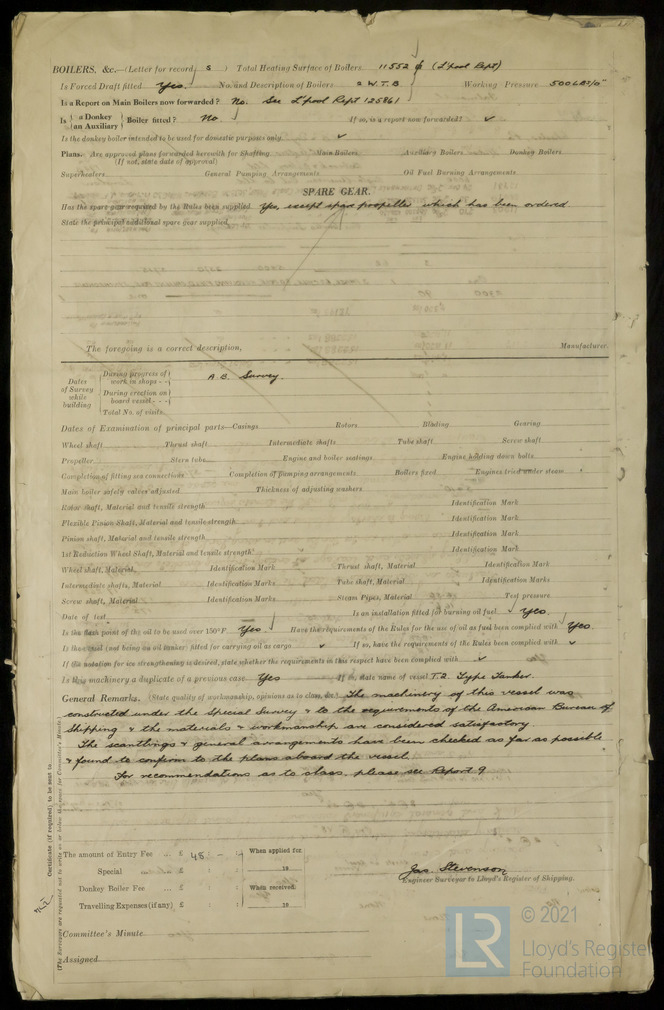 BOILERS, &c.—(Letter for record S ) Total Heating Surface of Boilers 11552 (L'pool Rept)
Is Forced Draft fitted Yes No. and Description of Boilers 2 W.T.B Working Pressure 500 LB/□"
Is a Report on Main Boilers now forwarded? No. See L'pool Rept 125861
Is { a Donkey / an Auxiliary } Boiler fitted? No If so, is a report now forwarded? ✓
Is the donkey boiler intended to be used for domestic purposes only ✓
Plans. Are approved plans forwarded herewith for Shafting Main Boilers Auxiliary Boilers Donkey Boilers
(If not, state date of approval)
Superheaters General Pumping Arrangements Oil Fuel Burning Arrangements
SPARE GEAR.
Has the spare gear required by the Rules been supplied Yes, except spare propeller which has been ordered
State the principal additional spare gear supplied
The foregoing is a correct description, Manufacturer.
Dates of Survey while building
During progress of work in shops - - A.B. Survey.
During erection on board vessel - - -
Total No. of visits
Dates of Examination of principal parts—Casings Rotors Blading Gearing
Wheel shaft Thrust shaft Intermediate shafts Tube shaft Screw shaft
Propeller Stern tube Engine and boiler seatings Engine holding down bolts
Completion of fitting sea connections Completion of pumping arrangements Boilers fixed Engines tried under steam
Main boiler safety valves adjusted Thickness of adjusting washers
Rotor shaft, Material and tensile strength Identification Mark
Flexible Pinion Shaft, Material and tensile strength Identification Mark
Pinion shaft, Material and tensile strength Identification Mark
1st Reduction Wheel Shaft, Material and tensile strength Identification Mark
Wheel shaft, Material Identification Mark Thrust shaft, Material Identification Mark
Intermediate shafts, Material Identification Marks Tube shaft, Material Identification Marks
Screw shaft, Material Identification Marks Steam Pipes, Material Test pressure
Date of test Is an installation fitted for burning oil fuel ✓ Yes.
Is the flash point of the oil to be used over 150°F. Yes Have the requirements of the Rules for the use of oil as fuel been complied with Yes.
Is the vessel (not being an oil tanker) fitted for carrying oil as cargo ✓ If so, have the requirements of the Rules been complied with ✓
If the notation for ice strengthening is desired, state whether the requirements in this respect have been complied with ✓
Is this machinery a duplicate of a previous case Yes If so, state name of vessel T.2. Type Tanker.
General Remarks. (State quality of workmanship, opinions as to class, &c.) The machinery of this vessel was
constructed under the Special Survey & to the requirements of the American Bureau of
Shipping & the materials & workmanship are considered satisfactory.
The scantlings & general arrangements have been checked as far as possible
& found to conform to the plans aboard the vessel.
For recommendations as to class, please see Report 9
Certificate (if required) to be sent to
(The Surveyors are requested not to write on or below the space for Committee's Minute.)
The amount of Entry Fee ... £ 45 : - : When applied for
Special ... £ : : 19
Donkey Boiler Fee ... £ : : When received,
Travelling Expenses (if any) £ : : 19
Jas Stevenson
Engineer Surveyor to Lloyd's Register of Shipping.
Committee's Minute
Assigned
LR © 2021
Lloyd's Register
Foundation